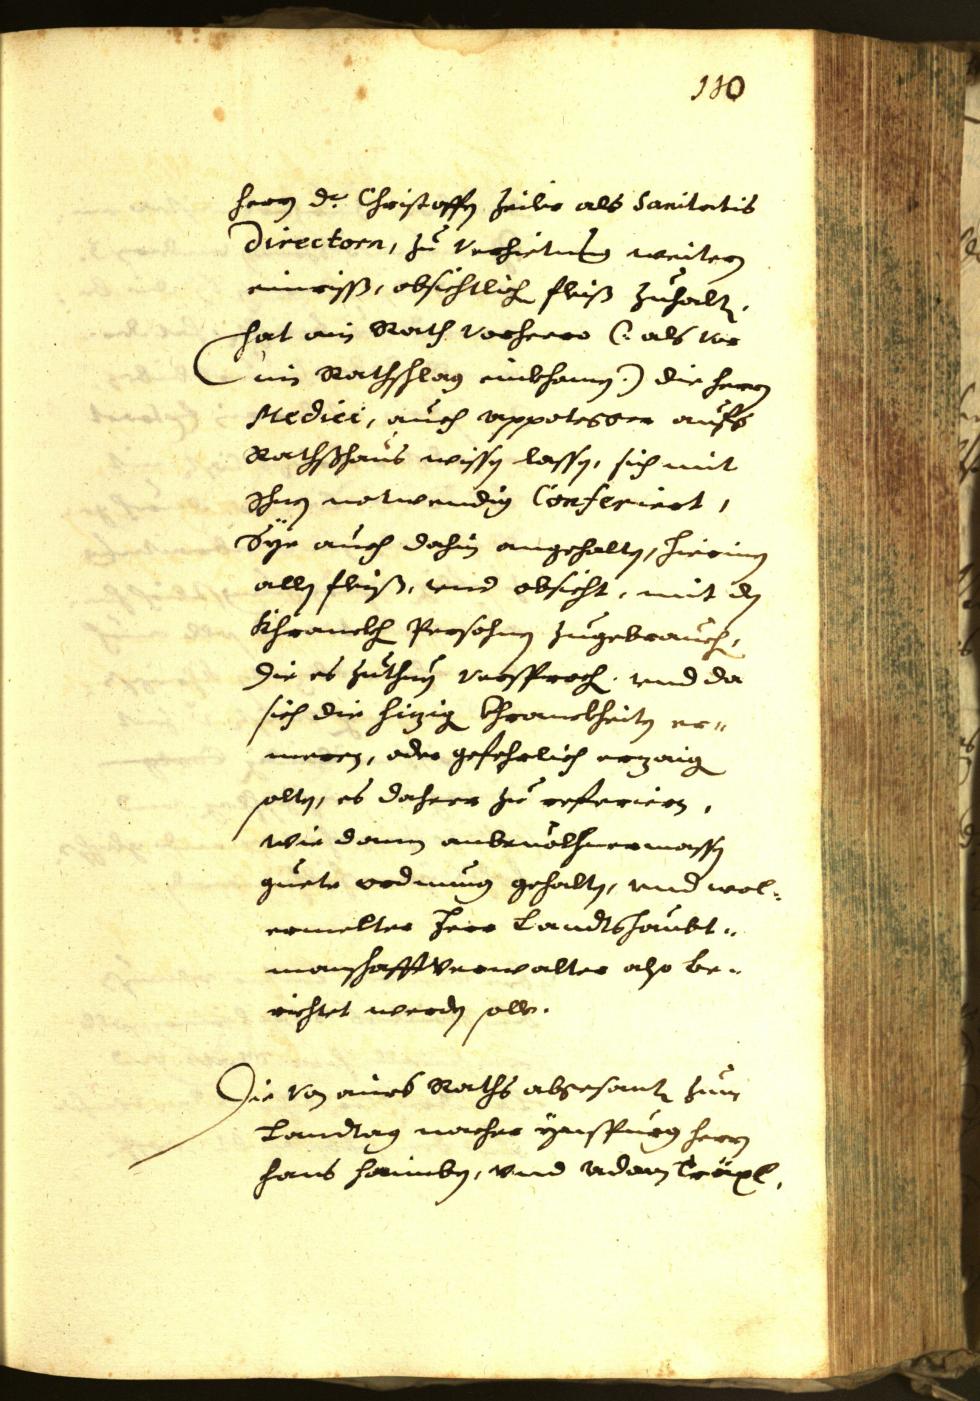 110
herrn Dr. Christoffen Zeiler als Sanitatis
Directorn, zu verhietung weitern
einriss, obsichtlich fleiß zuhalten.
hat ain Rath vorherro (: als vor
ein Rathschlag einkhomen :) die herrn
Medici, auch appotegger aufs
Rathßhaus wissen lassen, sich mit
Ihnen notwendig Conferiert,
Sye auch dahin angehalten, hierinen
allen fleiß, und obsicht, mit den
Khranckhen Persohnen zugebrauchen,
die es zuthuen versprochen. und da
sich die hizigen khranckheiten er„
meren, oder gefehrlich erzaigen
solten, es daherr zu referiern,
wie dann anbevolhnermassen
guete ordnung gehalten, und wol„
ermelter Herr Landtshaubt„
manschafftverwalter also be„
richtet werden solle.
Die von aines Raths abgesante zum
Landtag nacher Ynspurg herrn
Hans , und Adam Tröxl,